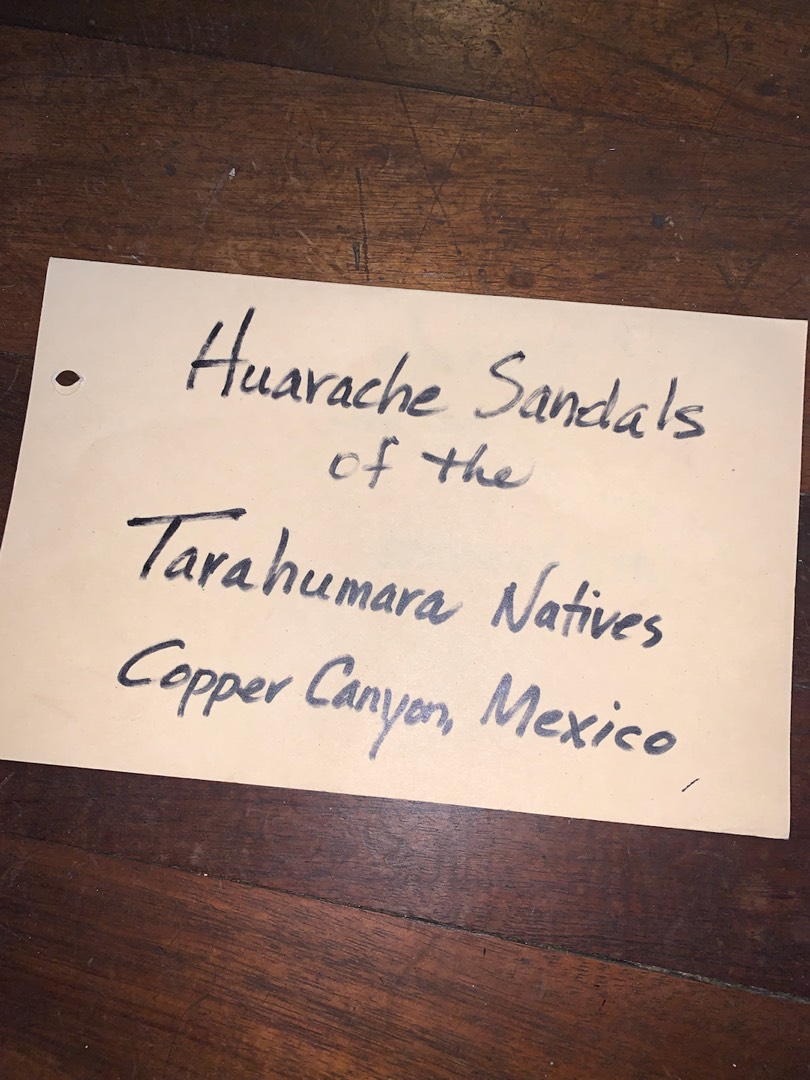 Huarache Sandals
of the
Tarahumara Natives
Copper Canyon, Mexico